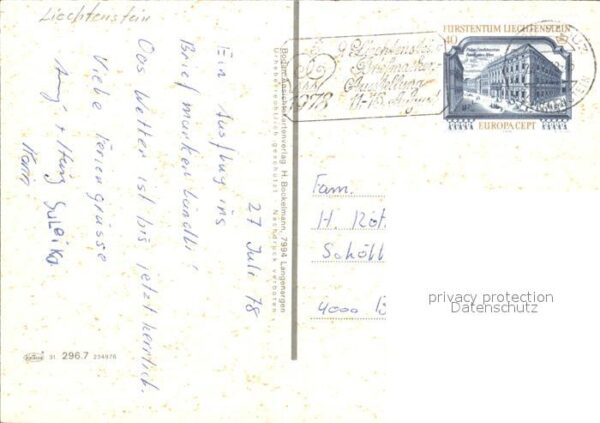 Liechtenstein
27 Juli 78
Ein Ausflug ins
Briefmarkenländli!
Das Wetter ist bis jetzt herrlich.
Liebe Feriengrüsse
Suleika
Karin
Bodan-Ansichtskartenverlag H. Bockelmann, 7994 Langenargen
Urheberrechtlich geschützt Nachdruck verboten
31 296.7 234976
9. Liechtensteiner
Briefmarken-
Ausstellung
11-15. August
1978
FÜRSTENTUM LIECHTENSTEIN
40
EUROPA CEPT
Fam.
H. Rot
Schöll
4000 B
privacy protection
Datenschutz